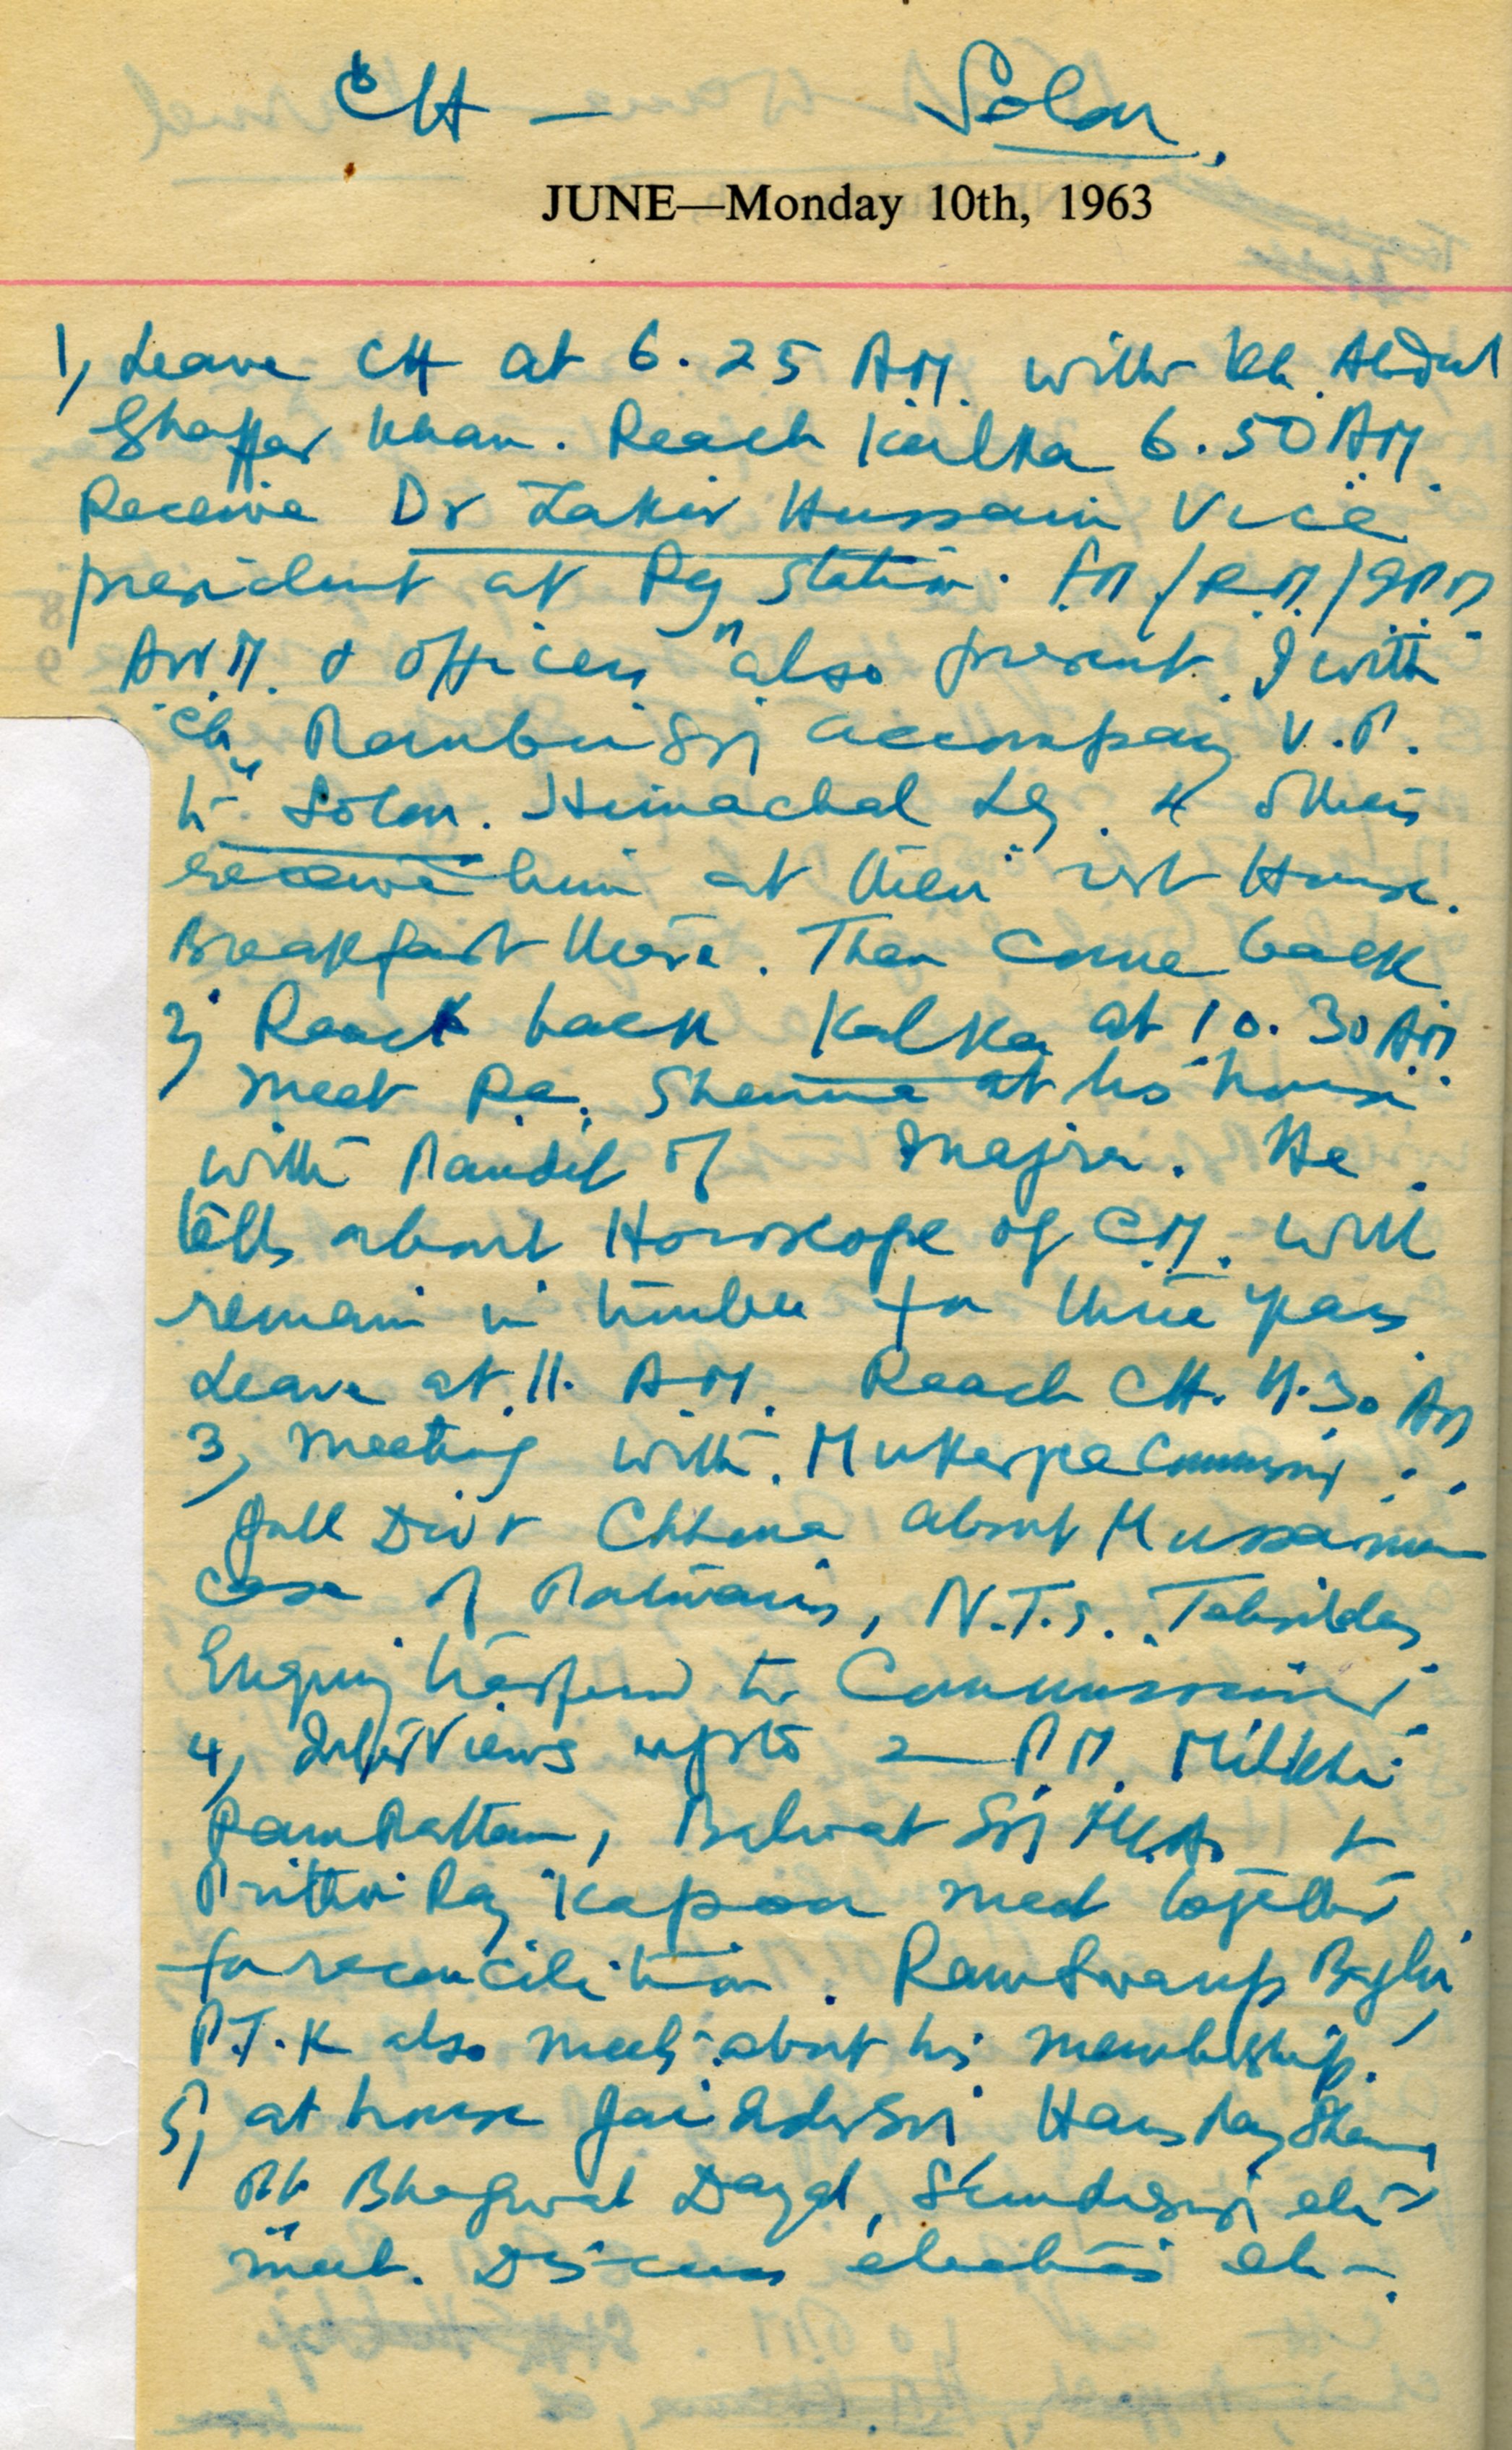 CH — Solan.
JUNE—Monday 10th, 1963
1, Leave CH at 6.25 AM. with Kh. Abdul
Ghaffar Khan. Reach Kalka 6.50 AM.
Receive Dr Zakir Hussain Vice
president at Rly Station.
& officers also present. I with
Ch. Ranbir Singh accompany V.P.
to Solan. Himachal Lg. & others
receive him at their rest House.
Breakfast there. Then come back
2, Reach back Kalka at 10.30 AM.
meet Sharma at his house
with Pandit of Majra. He
tells about Horoscope of C.M. will
remain in trouble for three years
Leave at 11. A.M. Reach CH. 11.30 AM
3, meeting with Mukerjee
Jull Divn about
case of Patwaris, N.T.s. Tehsildars
Enquiry to Commissioner.
4, Interviews upto 2 P.M. Milkhi
Ram Rattan, Balwant Singh MLAs &
Prithvi Raj Kapoor meet together
for reconciliation. Ram Swarup
P.T.K also meets about his membership.
5, at house Jai Inder Singh Hans Raj Sharma
Pt. Bhagwat Dayal,
meet. Discuss elections etc.